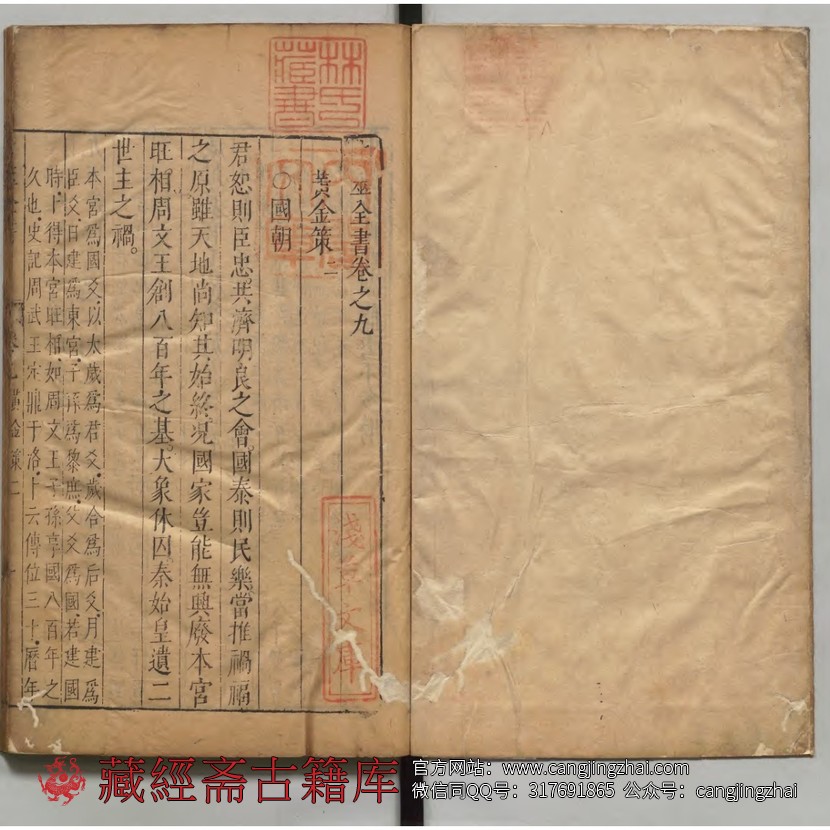 筮全書卷之九
黃金策二
○國朝
君恕則臣忠共濟明良之會國泰則民樂當推禍福
之原雖天地尚知其始終況國家豈能無興廢本宮
旺相周文王創八百年之基大象休囚秦始皇遺二
世主之禍
本宮爲國爻以太歲爲君爻歲合爲后爻月建爲
臣爻日建爲東宮子孫爲黎庶父爻爲國若建國
時卜得本宮旺相如周文王子孫享國八百年之
久也史記周武王定鼎于洛卜云傳位三十曆年
林氏藏書
淺草文庫
藏經斋古籍库
官方网站：www.cangjingzhai.com
微信同QQ号：317691865 公众号：cangjingzhai